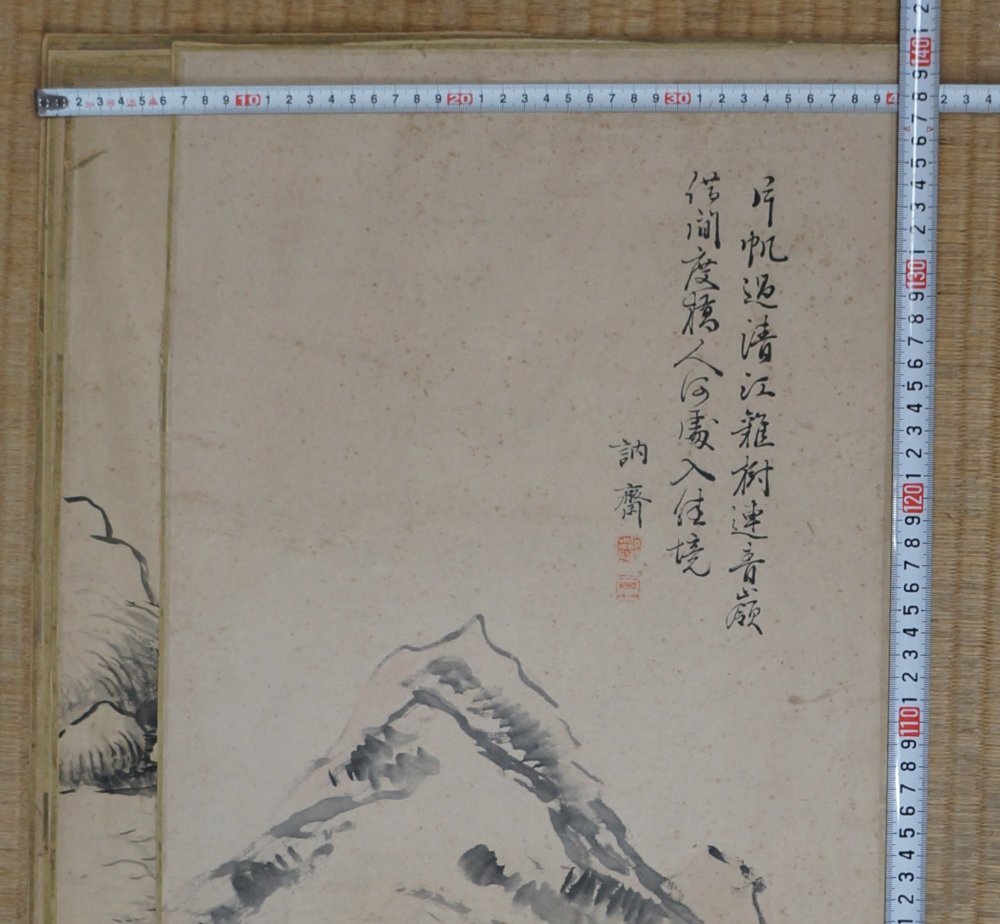 片帆過清江雜樹連青嶺
借問度橋人何處入佳境
訥齋
2 3 4 5 6 7 8 9 10 1 2 3 4 5 6 7 8 9 20 1 2 3 4 5 6 7 8 9 30 1 2 3 4 5 6 7 8 9 2 3 4
2 1 140 9 8 7 6 5 4 3 2 1 130 9 8 7 6 5 4 3 2 1 120 9 8 7 6 5 4 3 2 1 110 9 8 7 6 5 4 3 2 1